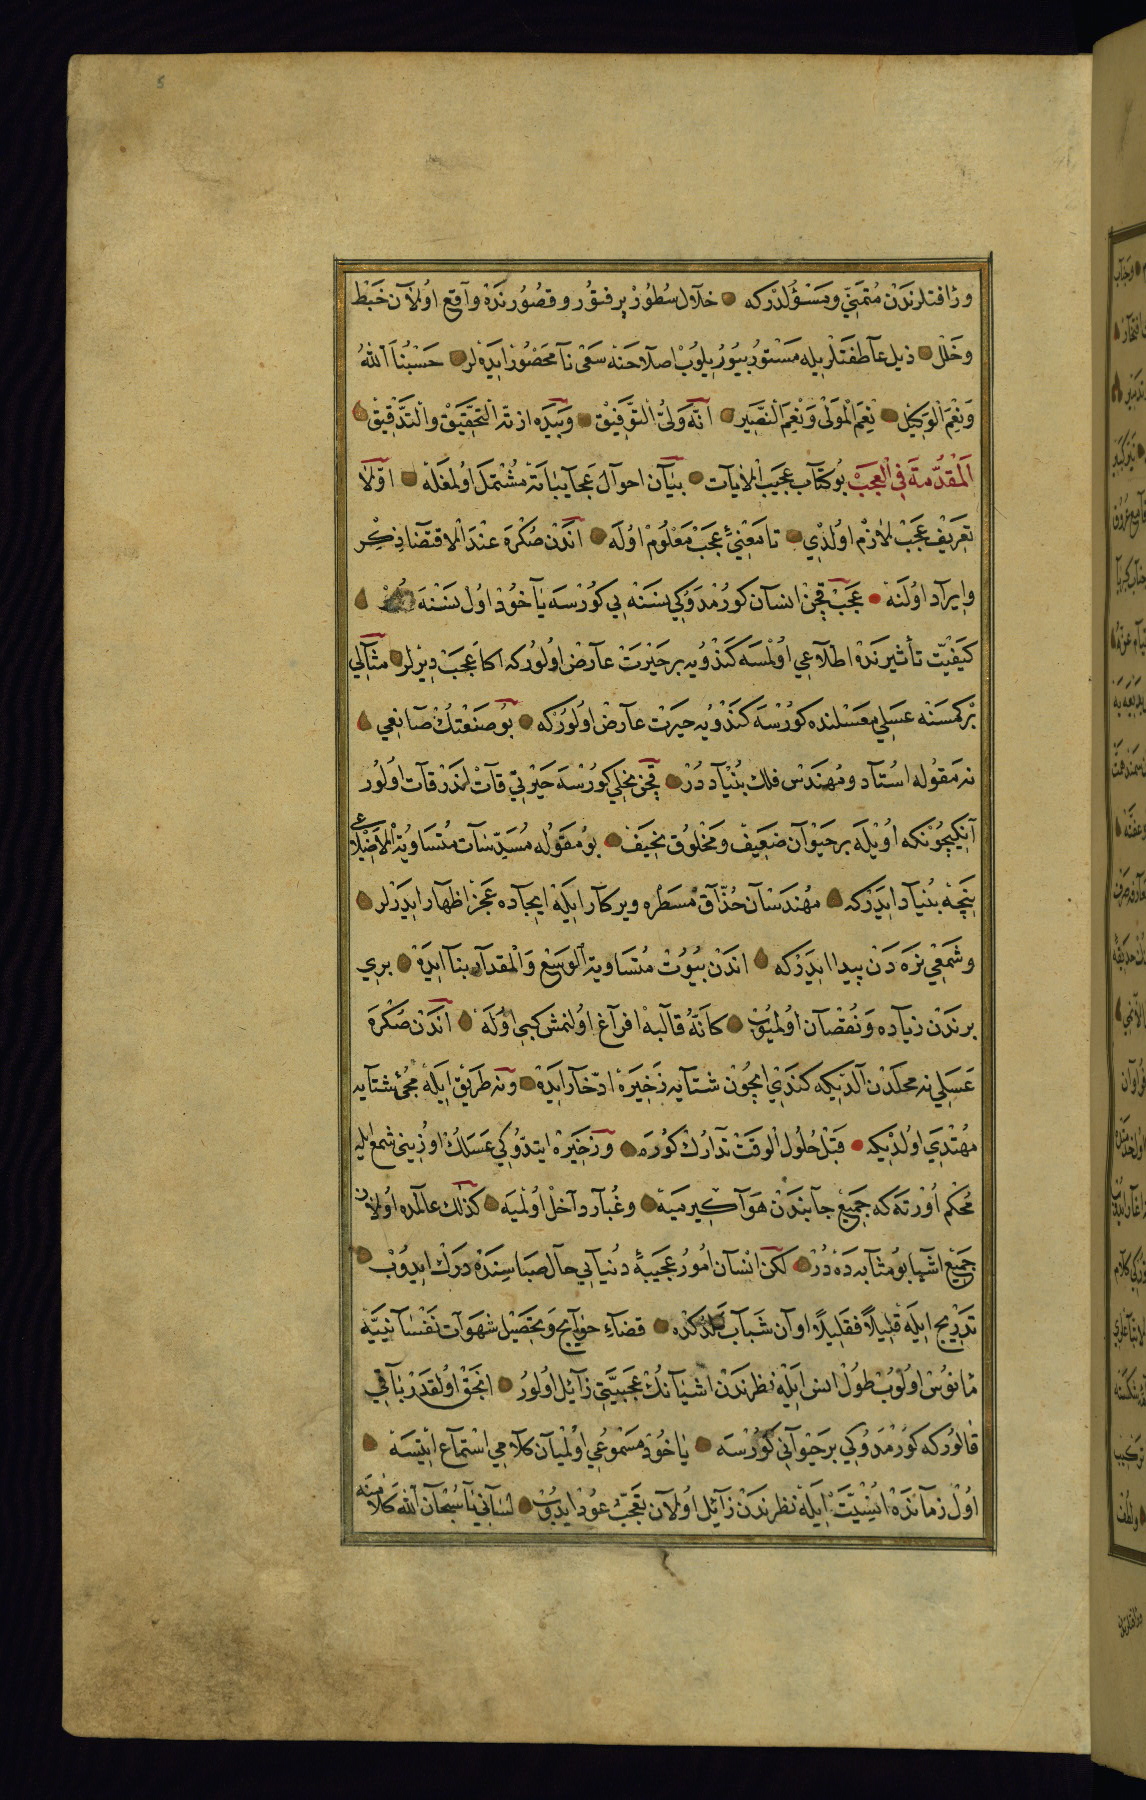 ورأفتلرندن متمنی ومسئولدرکه خلال سطور پر فتور و قصورنده واقع اولان خبط
وخلل ذیل عاطفتلریله مستور بیوریلوب اصلاحنه سعی نامحصور ایده لر حسبنا الله
ونعم الوکیل نعم المولی ونعم النصیر انه ولی التوفیق وبیده ازمة التحقیق والتدقیق
المقدمة فی العجب بو کتاب عجیب الایات بیان احوال عجایباته مشتمل اولمغله اولا
تعریف عجب لازم اولدی تا معنیٔ عجب معلوم اوله اندن صکره عند الاقتضا ذکر
وایراد اولنه عجب قچن انسان کورمدوکی نسنه یی کورسه یاخود اول نسنه نک
کیفیت تأثیرنده اطلاعی اولمسه کندویه بر حیرت عارض اولورکه اکا عجب دیرلر مثالی
بر کمسنه عسلی معسلنده کورسه کندویه حیرت عارض اولورکه بو صنعتک صانعی
نه مقوله استاد ومهندس فلک بنیاد در قچن نحلی کورسه حیرتی قات اندر قات اولور
آنکیچونکه اویله بر حیوان ضعیف ومخلوق نحیف بو مقوله مسدسات متساویة الاضلاعی
نیچه بنیاد ایدرکه مهندسان حذاق مسطره وپرکار ایله ایجاده عجز اظهار ایدرلر
وشمعی نره دن پیدا ایدرکه اندن بیوت متساویة الوسع والمقدار بنا ایده بری
برندن زیاده ونقصان اولمیوب کانه قالبه افراغ اولنمش کبی اوله اندن صکره
عسلی نه محلدن آلدیکه کندی ایچون شتایه ذخیره ادخار ایده ونه طریق ایله مجیٔ شتایه
مهتدی اولدیکه قبل حلول الوقت تدارک کوره وذخیره ایتدوکی عسلک اوزرینی شمع ایله
محکم اورته که جمیع جانبندن هوا کیرمیه وغبار داخل اولمیه کذلک عالمده اولان
جمیع اشیا بو مثابه ده در لکن انسان امور عجیبهٔ دنیایی حال صباسنده درک ایدوب
تدریج ایله قلیلا فقلیلا اوان شباب کلدکده قضاء حوایج وتحصیل شهوات نفسانیه
مانوس اولوب طول انس ایله نظرندن اشیانک عجیبیتی زائل اولور انجق اولقدر باقی
قالورکه کورمدوکی بر حیوانی کورسه یاخود مسموعی اولمیان کلامی استماع ایتسه
اول زمانده انسیت ایله نظرندن زائل اولان تعجب عود ایدوب لسانی یا سبحان الله کلامنه